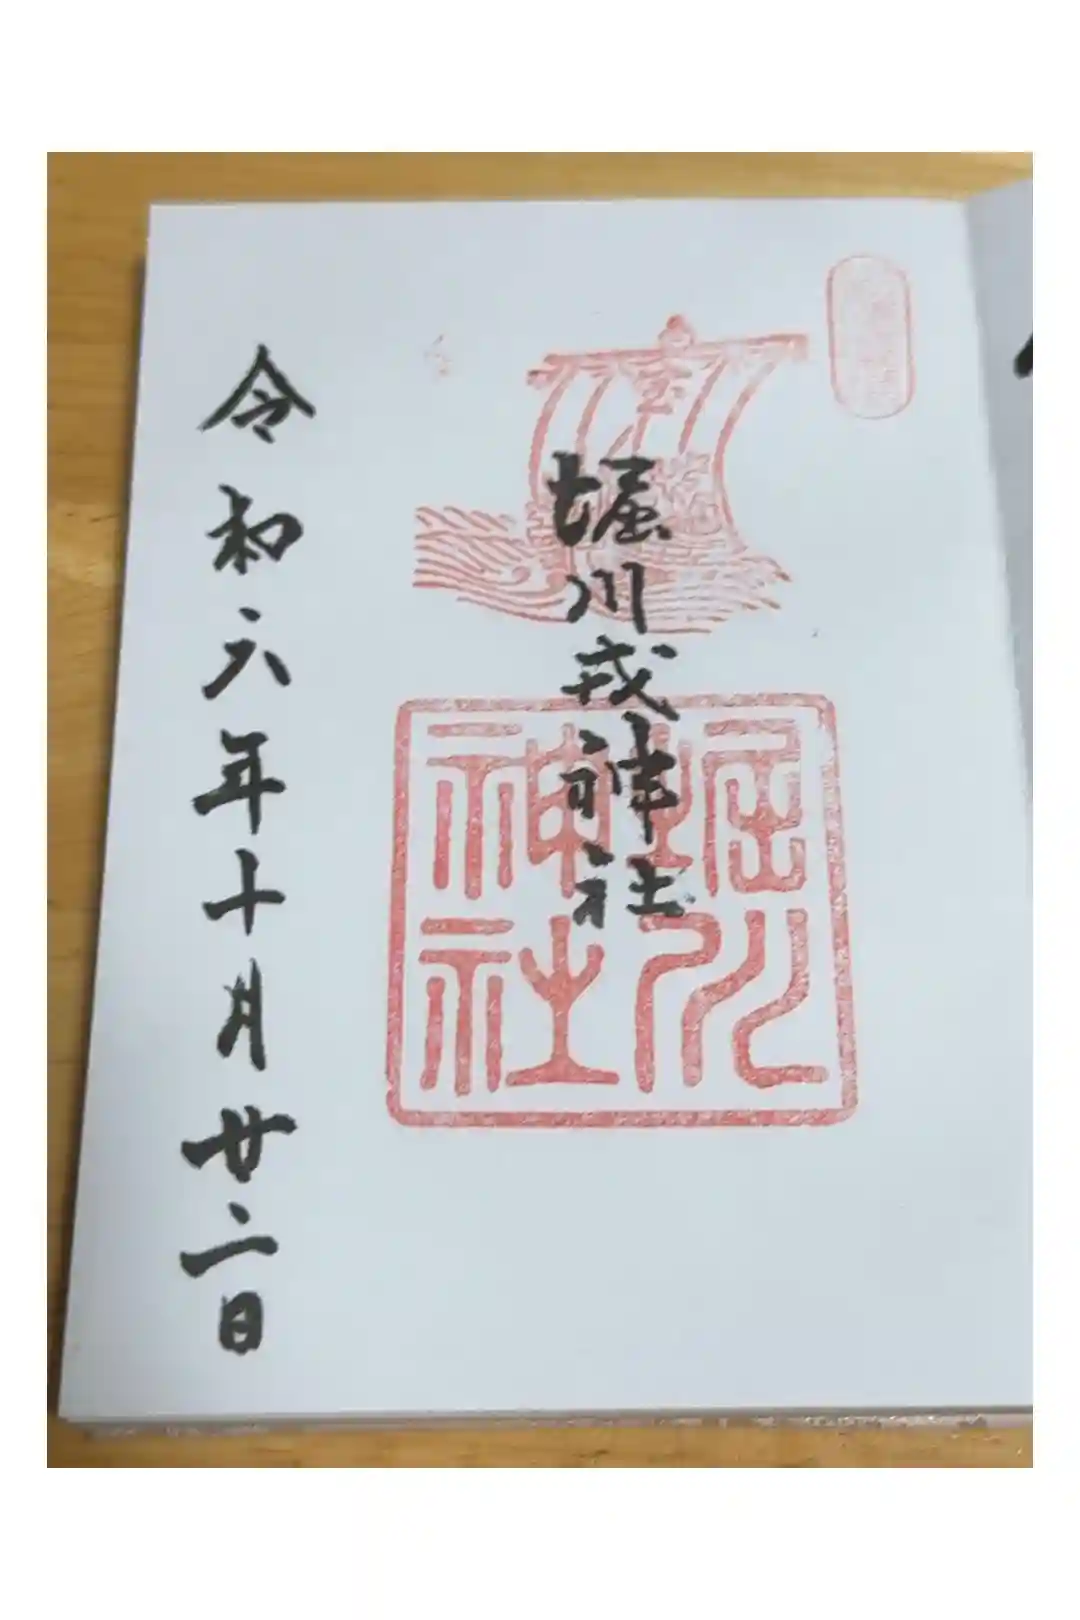 堀川戎神社
堀川
神社
令和六年十月廿二日